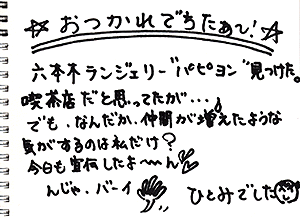 ☆おつかれでちたぁ〜!☆
六本木ランジェリー"パピヨン"見つけた。
喫茶店だと思ってたが・・・
でも、なんだか、仲間が増えたような
気がするのは私だけ?
今日も宣伝したよ〜ん
んじゃ、バーイ ひとみでした